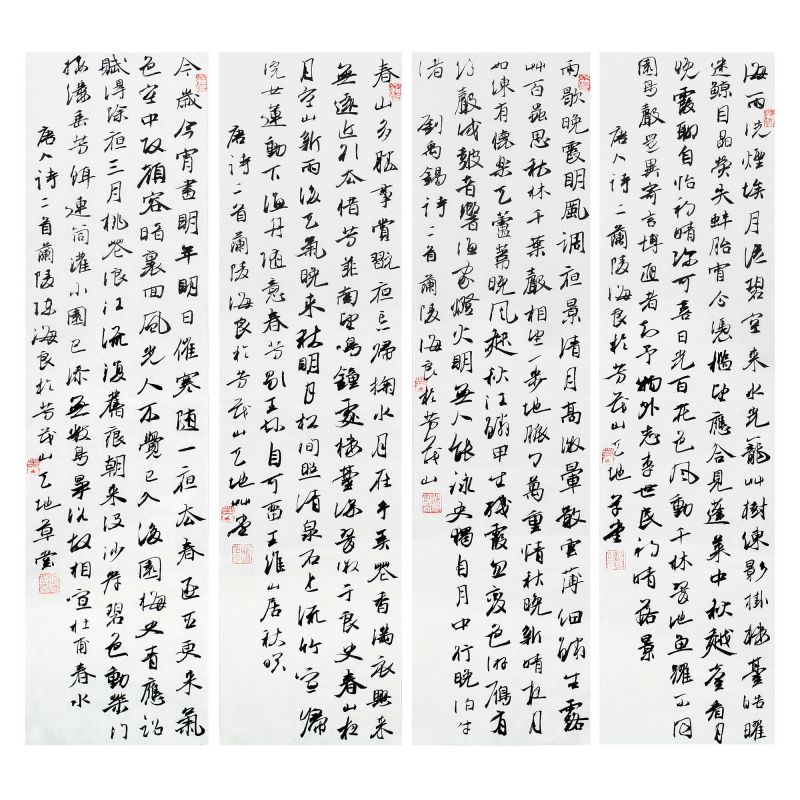 海雨洗煙埃月從碧空來水光籠艸樹練影掛樓臺皓曜
迷鯨目晶熒失蚌胎宵分憑檻望應合見蓬萊中秋越臺看月
晚霞聊自怡初晴彌可喜日光百花色風動千林翠池魚躍不同
園鳥聲還異寄言博通者知予物外志李世民初晴落景
唐人詩二蘭陵海良於芳茂山天地草堂
雨歇晚霞明風調夜景清月高微暈散雲薄細鱗生露
艸百蟲思秋林千葉聲相望一步地脈々萬重情秋晚新晴夜月
如練有懷樂天蘆葦晚風起秋江鱗甲生殘霞忽變色游雁有
聲戍鼓音響漁家燈火明無人能詠史獨自月中行晚泊牛
渚 劉禹錫詩二首蘭陵海良於芳茂山
春山多勝事賞翫夜忘歸掬水月在手弄花香滿衣興來
無遠近引去惜芳菲南望鳴鐘處樓臺深翠微于良史春山夜
月空山新雨後天氣晚來秋明月松間照清泉石上流竹喧歸
浣女蓮動下漁舟隨意春芳歇王孫自可留王維山居秋暝
唐詩二首蘭陵海良於芳茂山天地艸堂
今歲今宵盡明年明日催寒隨一夜去春逐五更來氣
色空中改顏容暗裏回風光人不覺已入後園梅史青應詔
賦得除夜三月桃花浪江流復舊痕朝來沒沙岸碧色動柴門
接縷垂芳餌連筒灌小園已添無數鳥爭浴故相喧杜甫春水
唐人詩二首蘭陵陳海良於芳茂山天地草堂